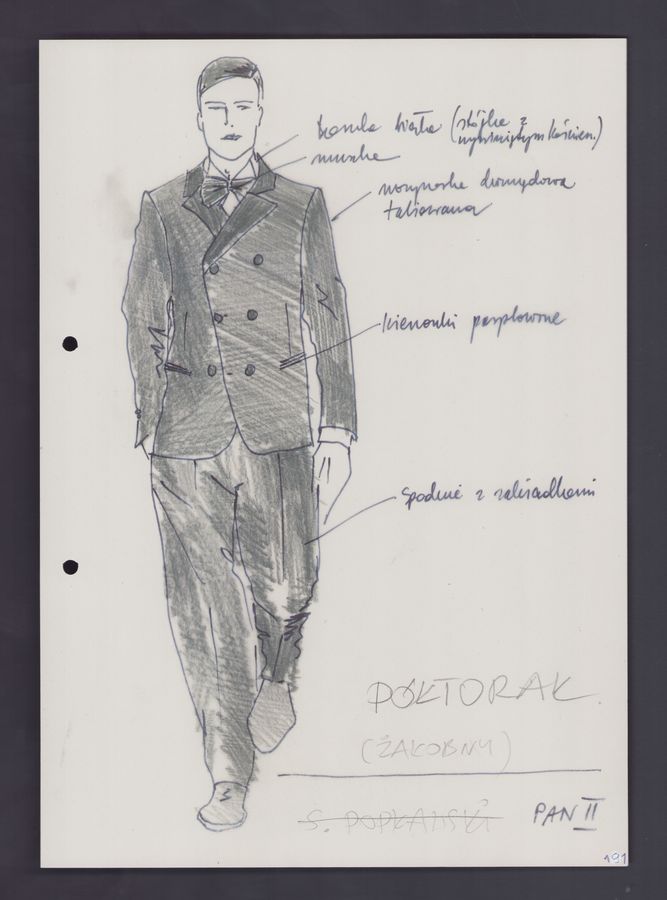 koszula biała (stójka z
wykładanym kołnierz.)
muszka
marynarka dwurzędowa
taliowana
kieszonki paspelowane
spodnie z zakładkami
PÓŁTORAK
(ŻAŁOBNY)
S. POPŁAŃSKI
PAN II
191